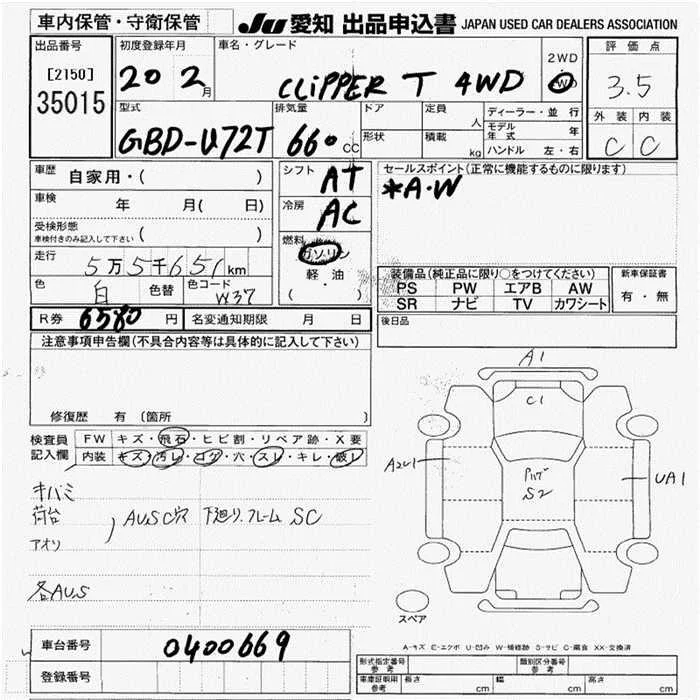 車内保管・守衛保管
JU 愛知 出品申込書 JAPAN USED CAR DEALERS ASSOCIATION
出品番号
[2150]
35015
初度登録年月
20 2月
車名・グレード
CLIPPER T 4WD
2WD
4WD
評価点
3.5
外装 内装
C C
型式
GBD-U72T
排気量
660 cc
ドア
形状
定員 人
積載 kg
ディーラー・並行
モデル年式 年
ハンドル 左・右
車歴 自家用・( )
車検 年 月( 日)
受検形態
車検付きのみ記入して下さい ( )
走行 5万5千651km
色 白 色替 色コード W37
シフト AT
冷房 AC
燃料
ガソリン
軽・油
( ・ )
セールスポイント(正常に機能するものに限ります)
*A・W
装備品(純正品に限り○をつけてください)
PS PW エアB AW
SR ナビ TV カワシート
新車保証書
有・無
後日品
R券 6580 円 名変通知期限 月 日
注意事項申告欄(不具合内容等は具体的に記入して下さい)
修復歴 有 〔箇所 〕
検査員記入欄
FW キズ・飛石・ヒビ割・リペア跡・X要
内装 キズ・汚レ・コゲ・穴・スレ・キレ・破レ
キバミ
荷台
AUSC穴 下廻り.フレーム SC
アオリ
各AUS
A1
C1
A2U1
S2
UA1
スペア
A-キズ E-エクボ U-凹み W-補修跡 S-サビ C-腐食 XX-交換済
車台番号 0400669
登録番号
形式指定番号 参考
類別区分番号 参考
車庫証明用 参考 長さ cm 幅 cm 高さ cm